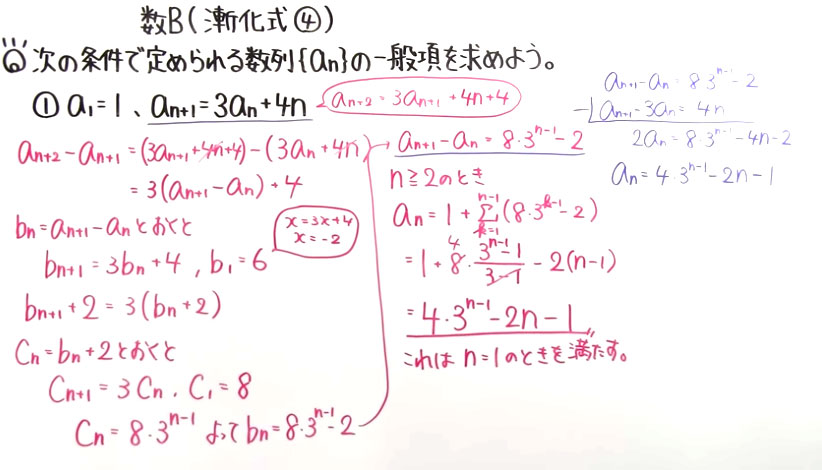 数B(漸化式④)
◎次の条件で定められる数列{an}の一般項を求めよう。
① a₁=1、aₙ₊₁=3aₙ+4n
aₙ₊₂=3aₙ₊₁+4n+4
aₙ₊₂-aₙ₊₁=(3aₙ₊₁+4n+4)-(3aₙ+4n)
=3(aₙ₊₁-aₙ)+4
bₙ=aₙ₊₁-aₙとおくと
x=3x+4
x=-2
bₙ₊₁=3bₙ+4, b₁=6
bₙ₊₁+2=3(bₙ+2)
Cₙ=bₙ+2とおくと
Cₙ₊₁=3Cₙ, C₁=8
Cₙ=8・3ⁿ⁻¹ よって bₙ=8・3ⁿ⁻¹-2
aₙ₊₁-aₙ=8・3ⁿ⁻¹-2
n≧2のとき
aₙ=1+Σ[k=1→n-1](8・3ᵏ⁻¹-2)
=1+8・(3ⁿ⁻¹-1)/(3-1)-2(n-1)
4
=4・3ⁿ⁻¹-2n-1
これはn=1のときを満たす。
aₙ₊₁-aₙ=8・3ⁿ⁻¹-2
-)aₙ₊₁-3aₙ=4n
2aₙ=8・3ⁿ⁻¹-4n-2
aₙ=4・3ⁿ⁻¹-2n-1